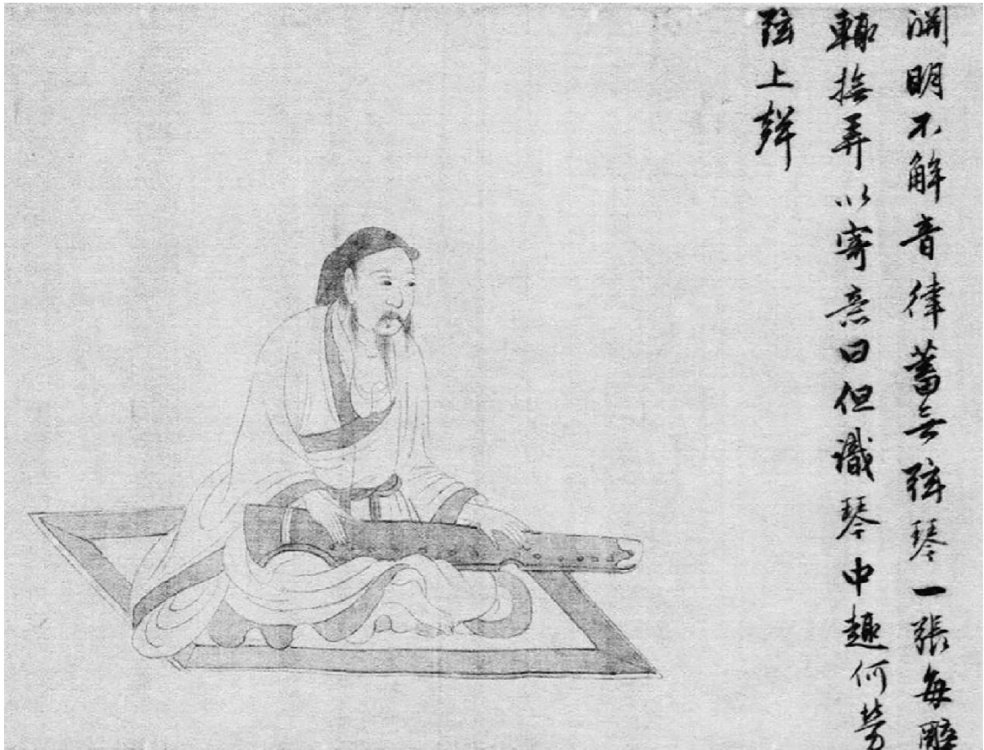 渊明不解音律蓄无弦琴一張每醉
輙撫弄以寄意曰但識琴中趣何劳
弦上聲